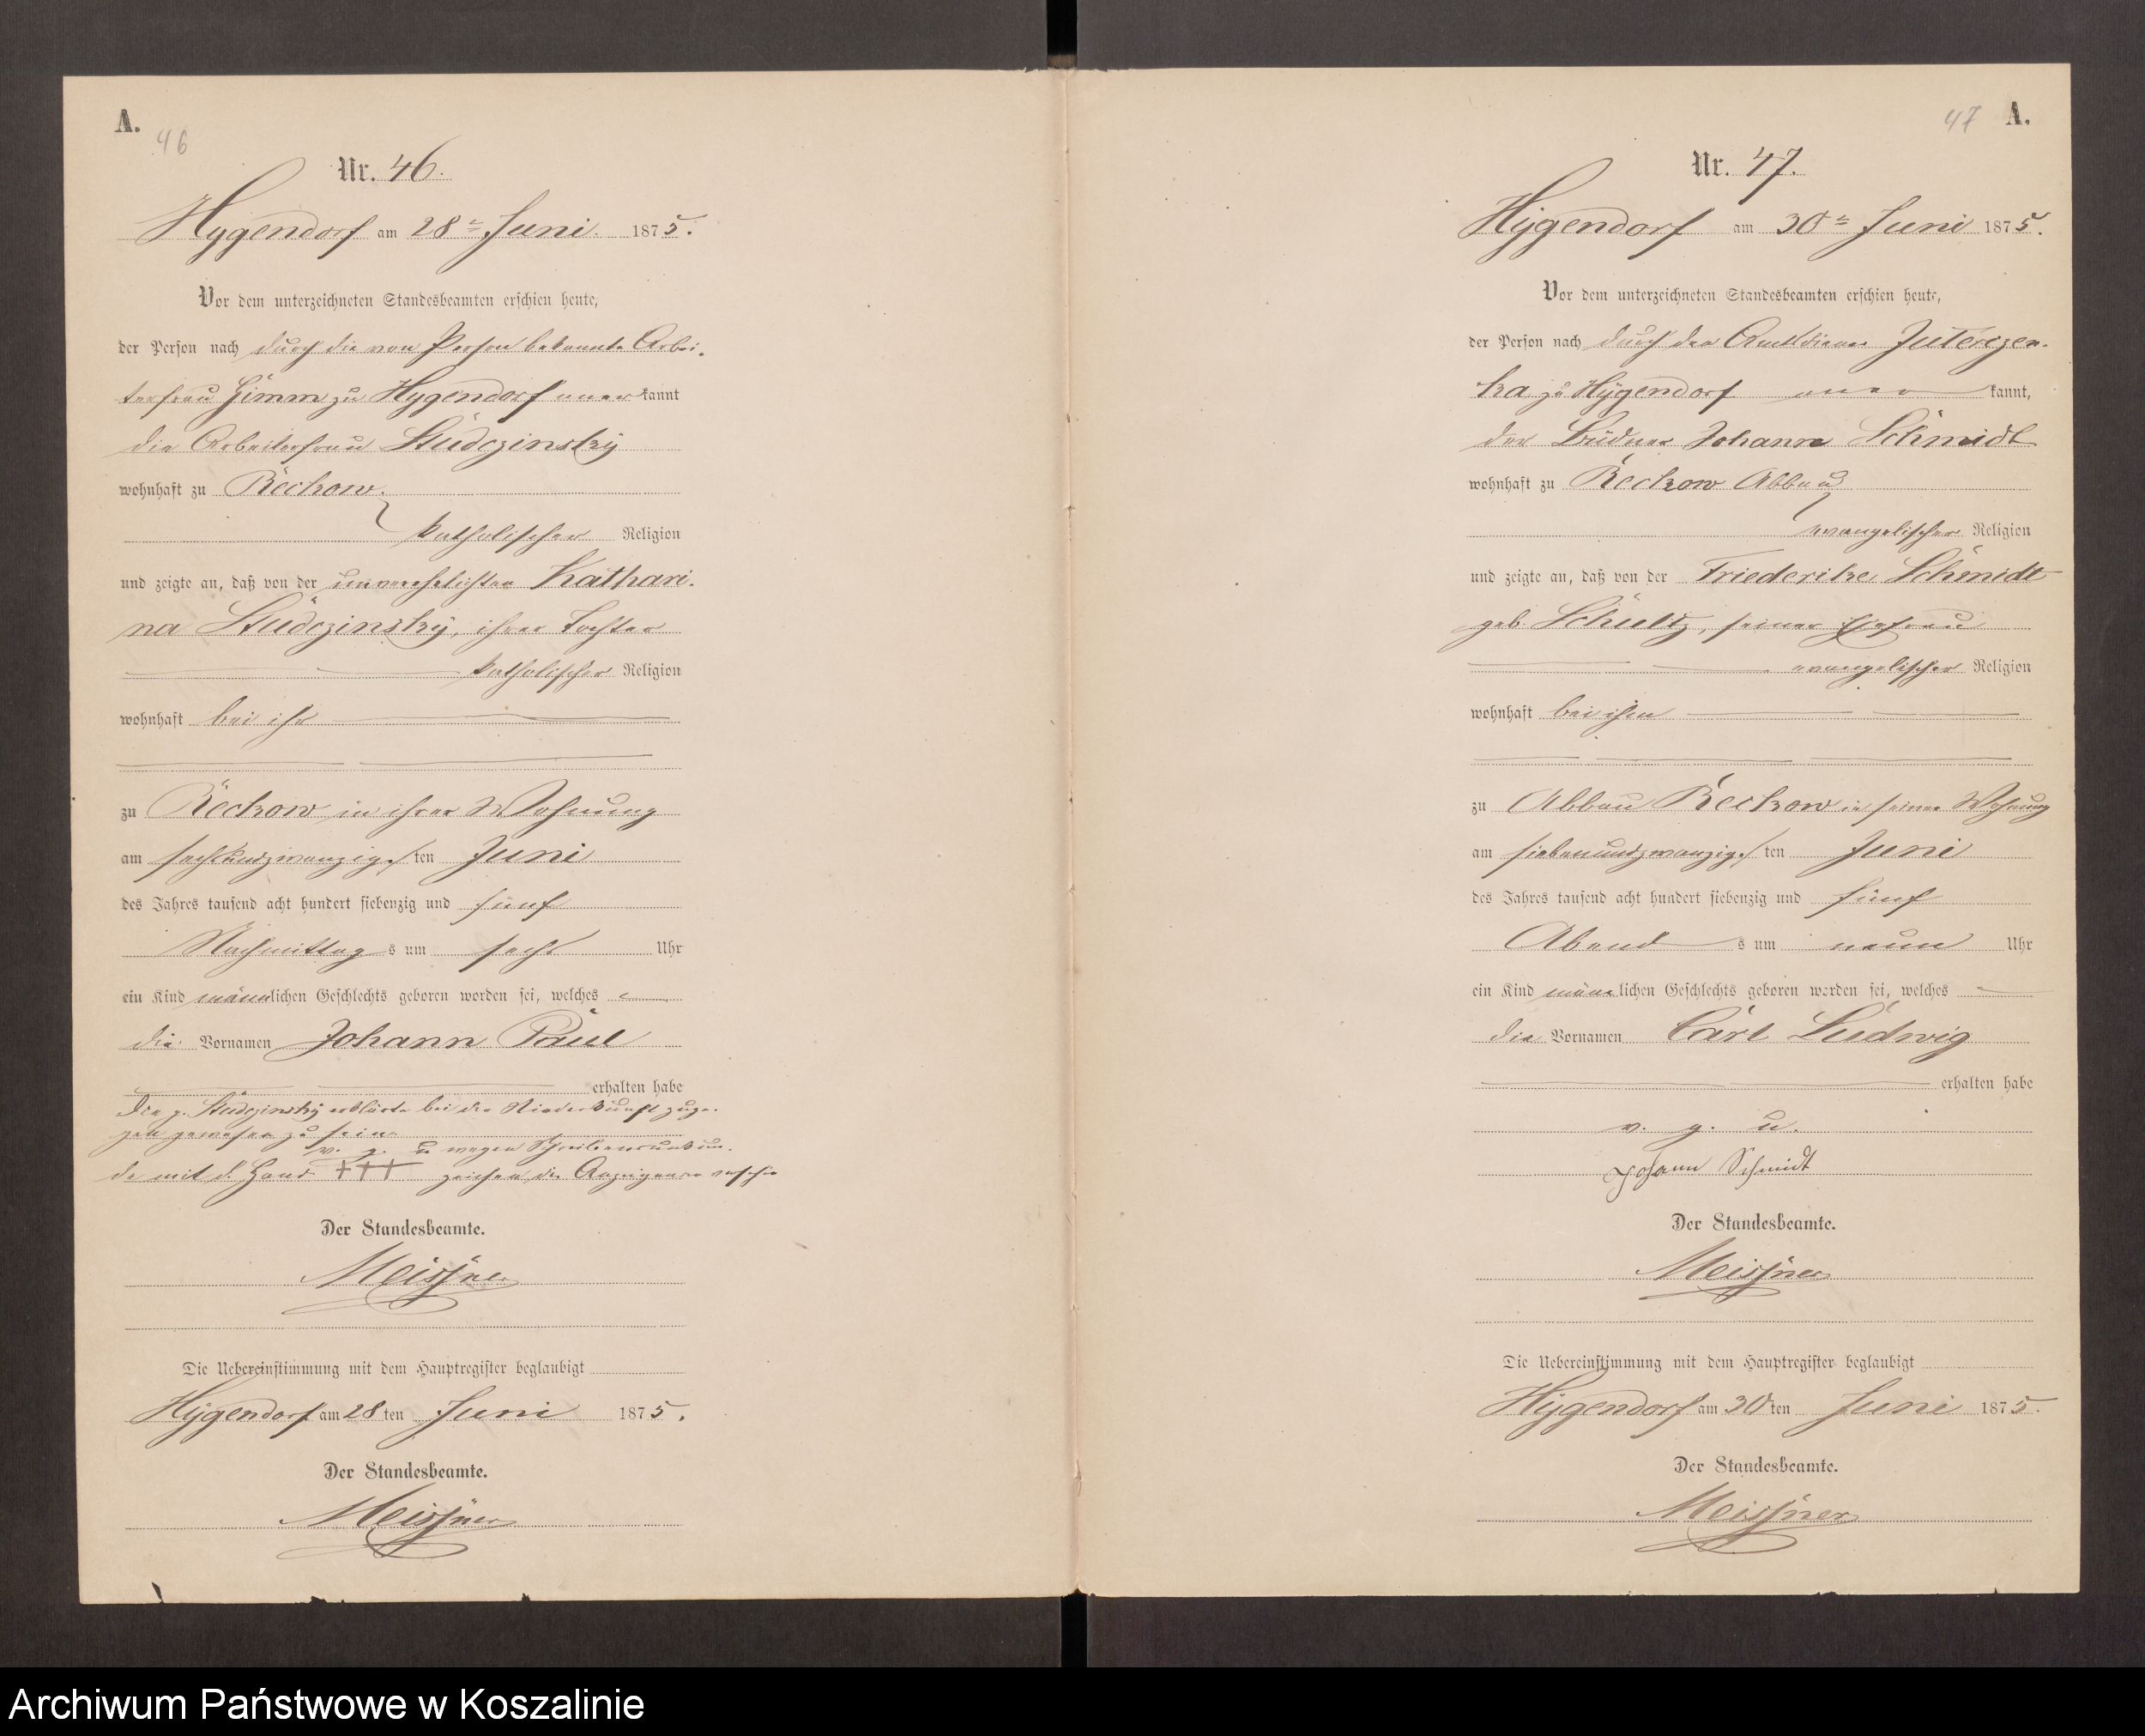 A.
46
Nr. 46.
Hygendorf am 28ten Juni 1875.
Vor dem unterzeichneten Standesbeamten erschien heute,
der Person nach durch die von Person bekannte Arbei-
terfrau Gimm zu Hygendorf anerkannt
die Arbeiterfrau Studczinsky
wohnhaft zu Reckow.
katholischer Religion
und zeigte an, daß von der unverehelichten Kathari-
na Studczinsky, ihrer Tochter
katholischer Religion
wohnhaft bei ihr
zu Reckow in ihrer Wohnung
am sechsundzwanzigsten Juni
des Jahres tausend acht hundert siebenzig und fünf
Nachmittags um sechs Uhr
ein Kind männlichen Geschlechts geboren worden sei, welches
die Vornamen Johann Paul
erhalten habe
Die p. Studczinsky erklärte bei der Niederkunft zuge-
gen gewesen zu sein
v. g. u wegen Schreibensunkun-
de mit d. Hand +++ zeichen der Anzeigenden
Der Standesbeamte.
Meissner
Die Uebereinstimmung mit dem Hauptregister beglaubigt
Hygendorf am 28 ten Juni 1875.
Der Standesbeamte.
Meissner
47 A.
Nr. 47.
Hygendorf am 30ten Juni 1875.
Vor dem unterzeichneten Standesbeamten erschien heute,
der Person nach durch den Amtsdiener Juterczen-
ka zu Hygendorf anerkannt,
der Büdner Johann Schmidt
wohnhaft zu Reckow Abbau
evangelischer Religion
und zeigte an, daß von der Friederike Schmidt
geb Schultz, seiner Ehefrau
evangelischer Religion
wohnhaft bei ihm
zu Abbau Reckow in seiner Wohnung
am siebenundzwanzigsten Juni
des Jahres tausend acht hundert siebenzig und fünf
Abends um neun Uhr
ein Kind männlichen Geschlechts geboren worden sei, welches
die Vornamen Carl Ludwig
erhalten habe
v. g. u.
Johann Schmidt
Der Standesbeamte.
Meissner
Die Uebereinstimmung mit dem Hauptregister beglaubigt
Hygendorf am 30 ten Juni 1875.
Der Standesbeamte.
Meissner
Archiwum Państwowe w Koszalinie